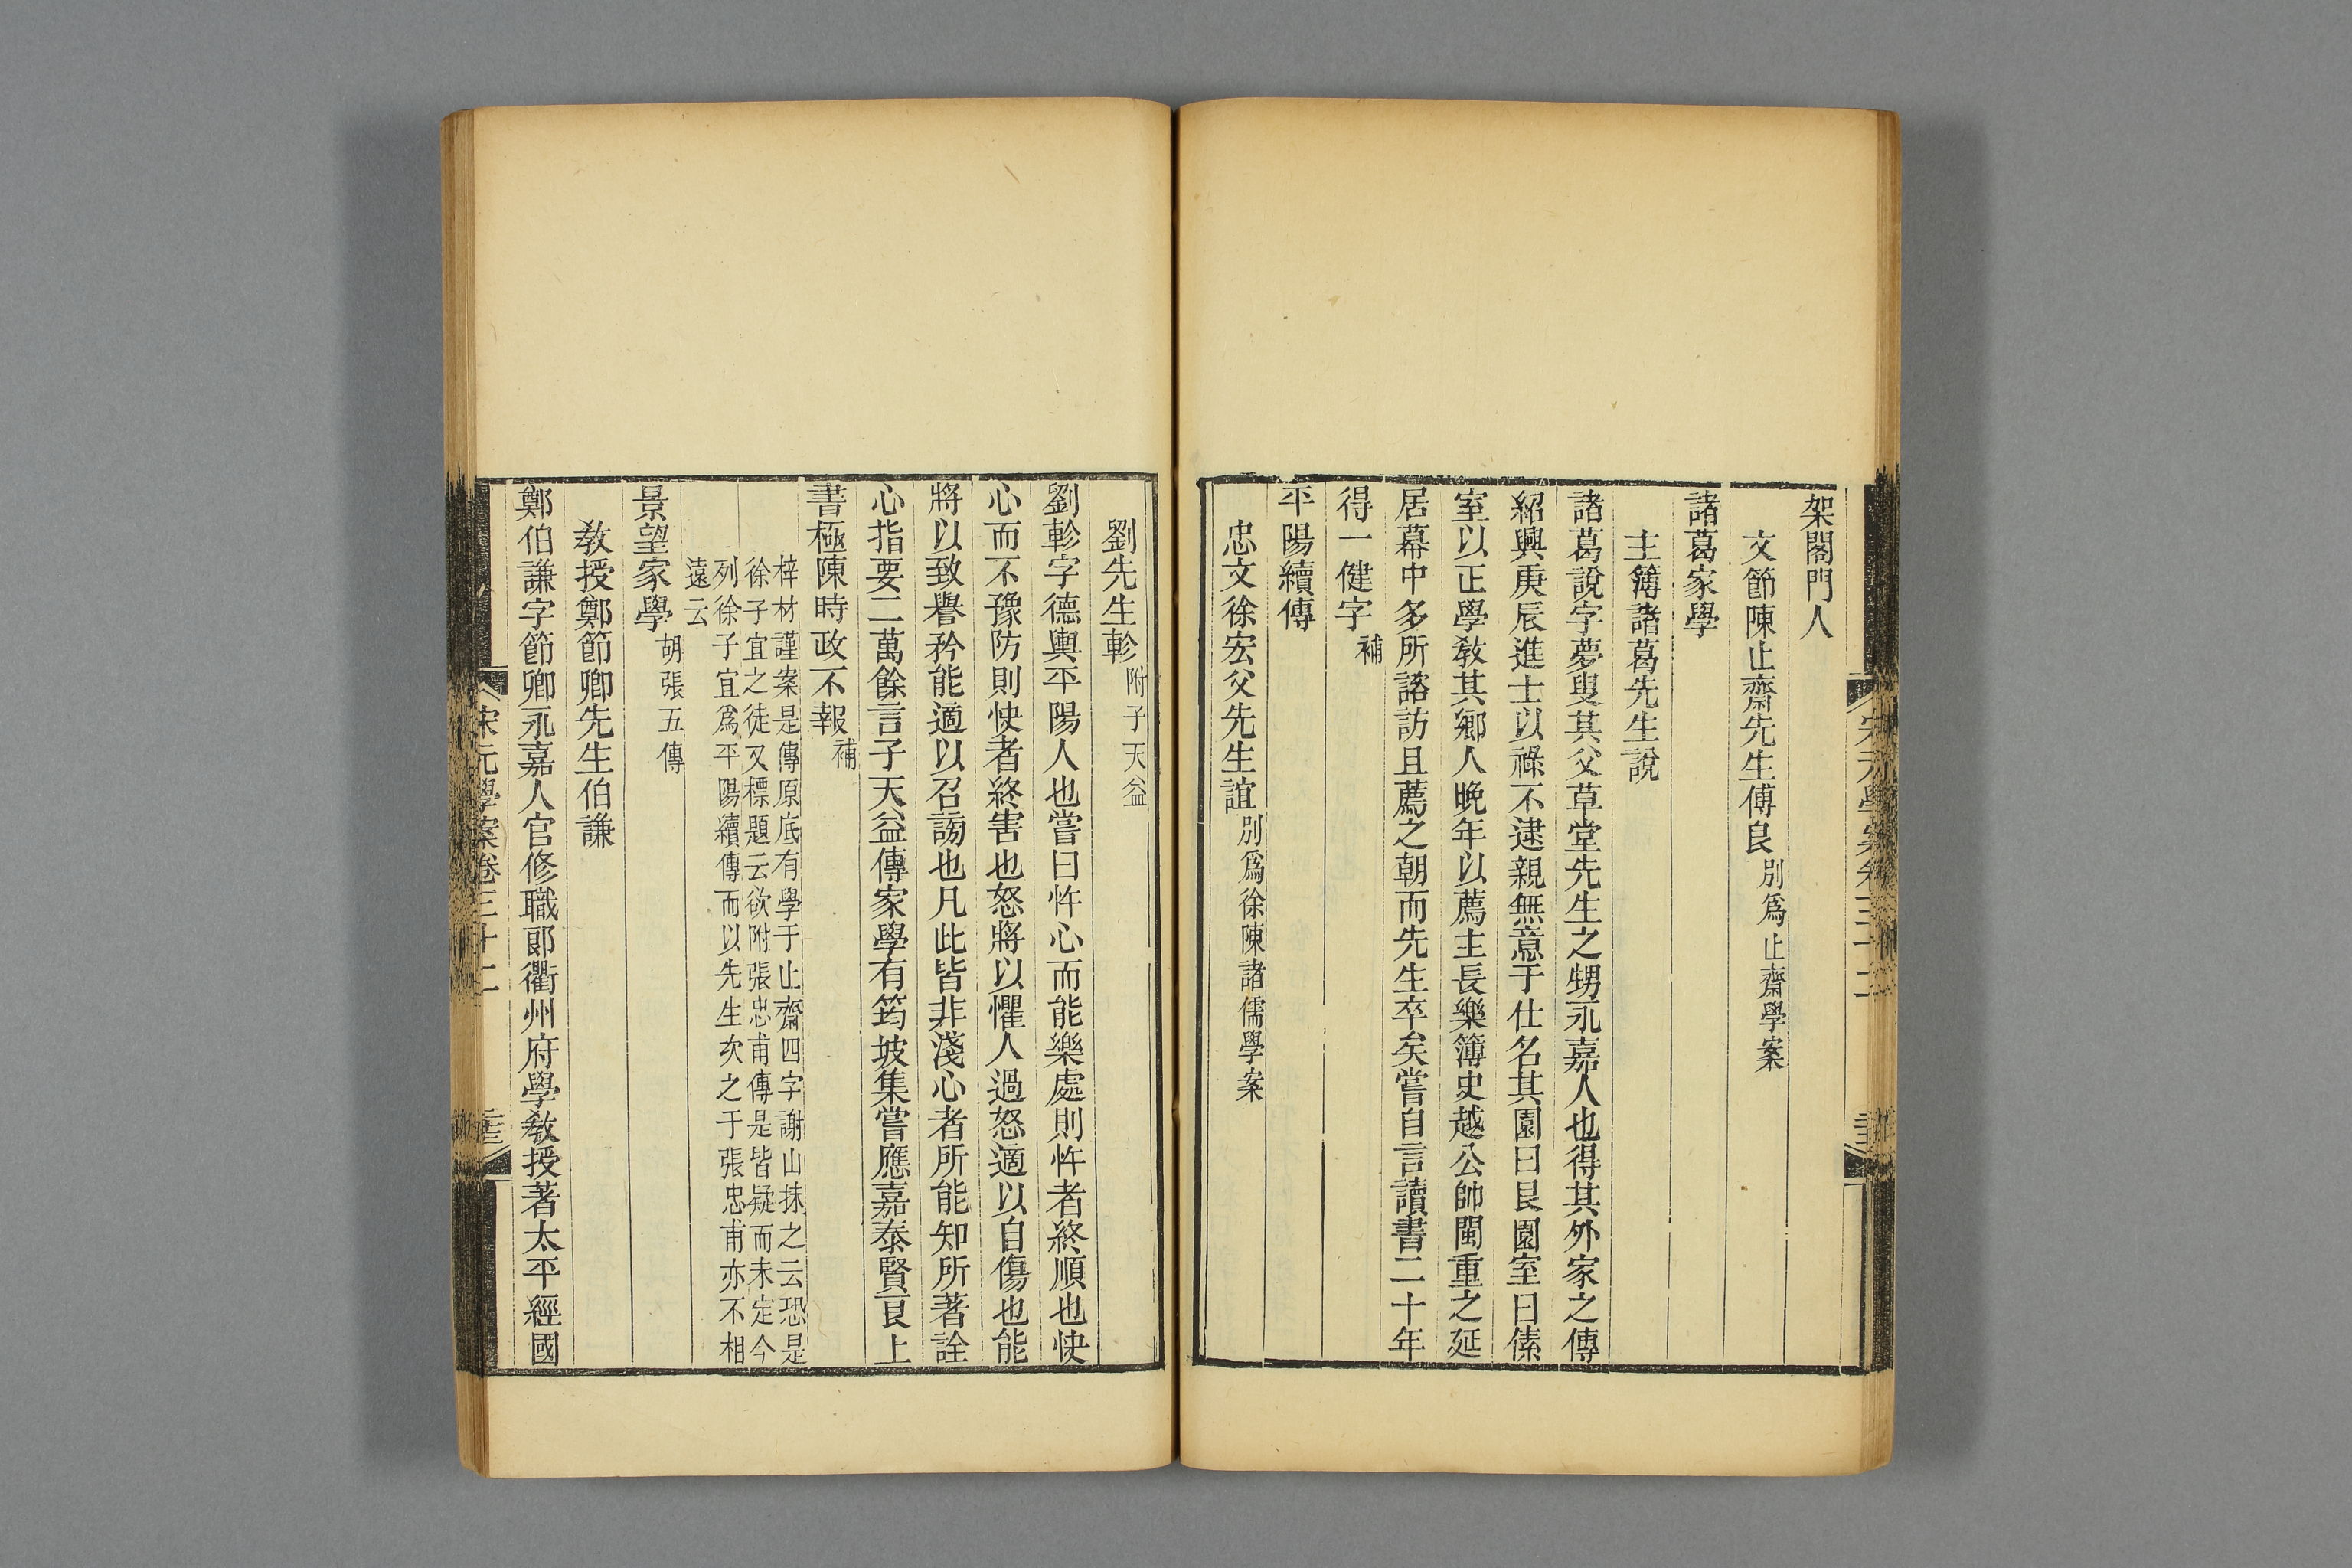 架閣門人
文節陳止齋先生傅良別爲止齋學案
諸葛家學
主簿諸葛先生說
諸葛說字夢叟其父草堂先生之甥永嘉人也得其外家之傳
紹興庚辰進士以祿不逮親無意于仕名其園曰艮園室曰傃
室以正學敎其鄉人晚年以薦主長樂簿史越公帥閩重之延
居幕中多所諮訪且薦之朝而先生卒矣嘗自言讀書二十年
得一健字補
平陽續傳
忠文徐宏父先生誼別爲徐陳諸儒學案
劉先生軫附子天益
劉軫字德輿平陽人也嘗曰忤心而能樂處則忤者終順也快
心而不豫防則快者終害也怒將以懼人過怒適以自傷也能
將以致譽矜能適以召謗也凡此皆非淺心者所能知所著詮
心指要二萬餘言子天益傳家學有筠坡集嘗應嘉泰賢良上
書極陳時政不報補
梓材謹案是傳原底有學于止齋四字謝山抹之云恐是
徐子宜之徒又標題云欲附張忠甫傳是皆疑而未定今
列徐子宜爲平陽續傳而以先生次之于張忠甫亦不相
遠云
景望家學胡張五傳
敎授鄭節卿先生伯謙
鄭伯謙字節卿永嘉人官修職郞衢州府學敎授著太平經國
宋元學案卷三十二